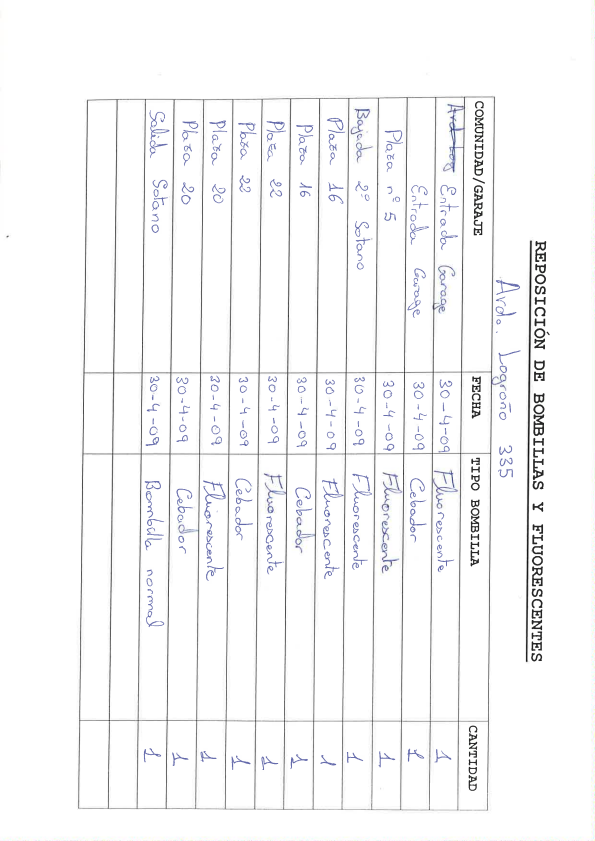 REPOSICIÓN DE BOMBILLAS Y FLUORESCENTES
Avda. Logroño 335
COMUNIDAD/GARAJE FECHA TIPO BOMBILLA CANTIDAD
Entrada Garage 30-4-09 Fluorescente 1
Entrada Garage 30-4-09 Cebador 1
Plaza nº 5 30-4-09 Fluorescente 1
Bajada 2º Sotano 30-4-09 Fluorescente 1
Plaza 16 30-4-09 Fluorescente 1
Plaza 16 30-4-09 Cebador 1
Plaza 22 30-4-09 Fluorescente 1
Plaza 22 30-4-09 Cebador 1
Plaza 20 30-4-09 Fluorescente 1
Plaza 20 30-4-09 Cebador 1
Salida Sotano 30-4-09 Bombilla normal 1